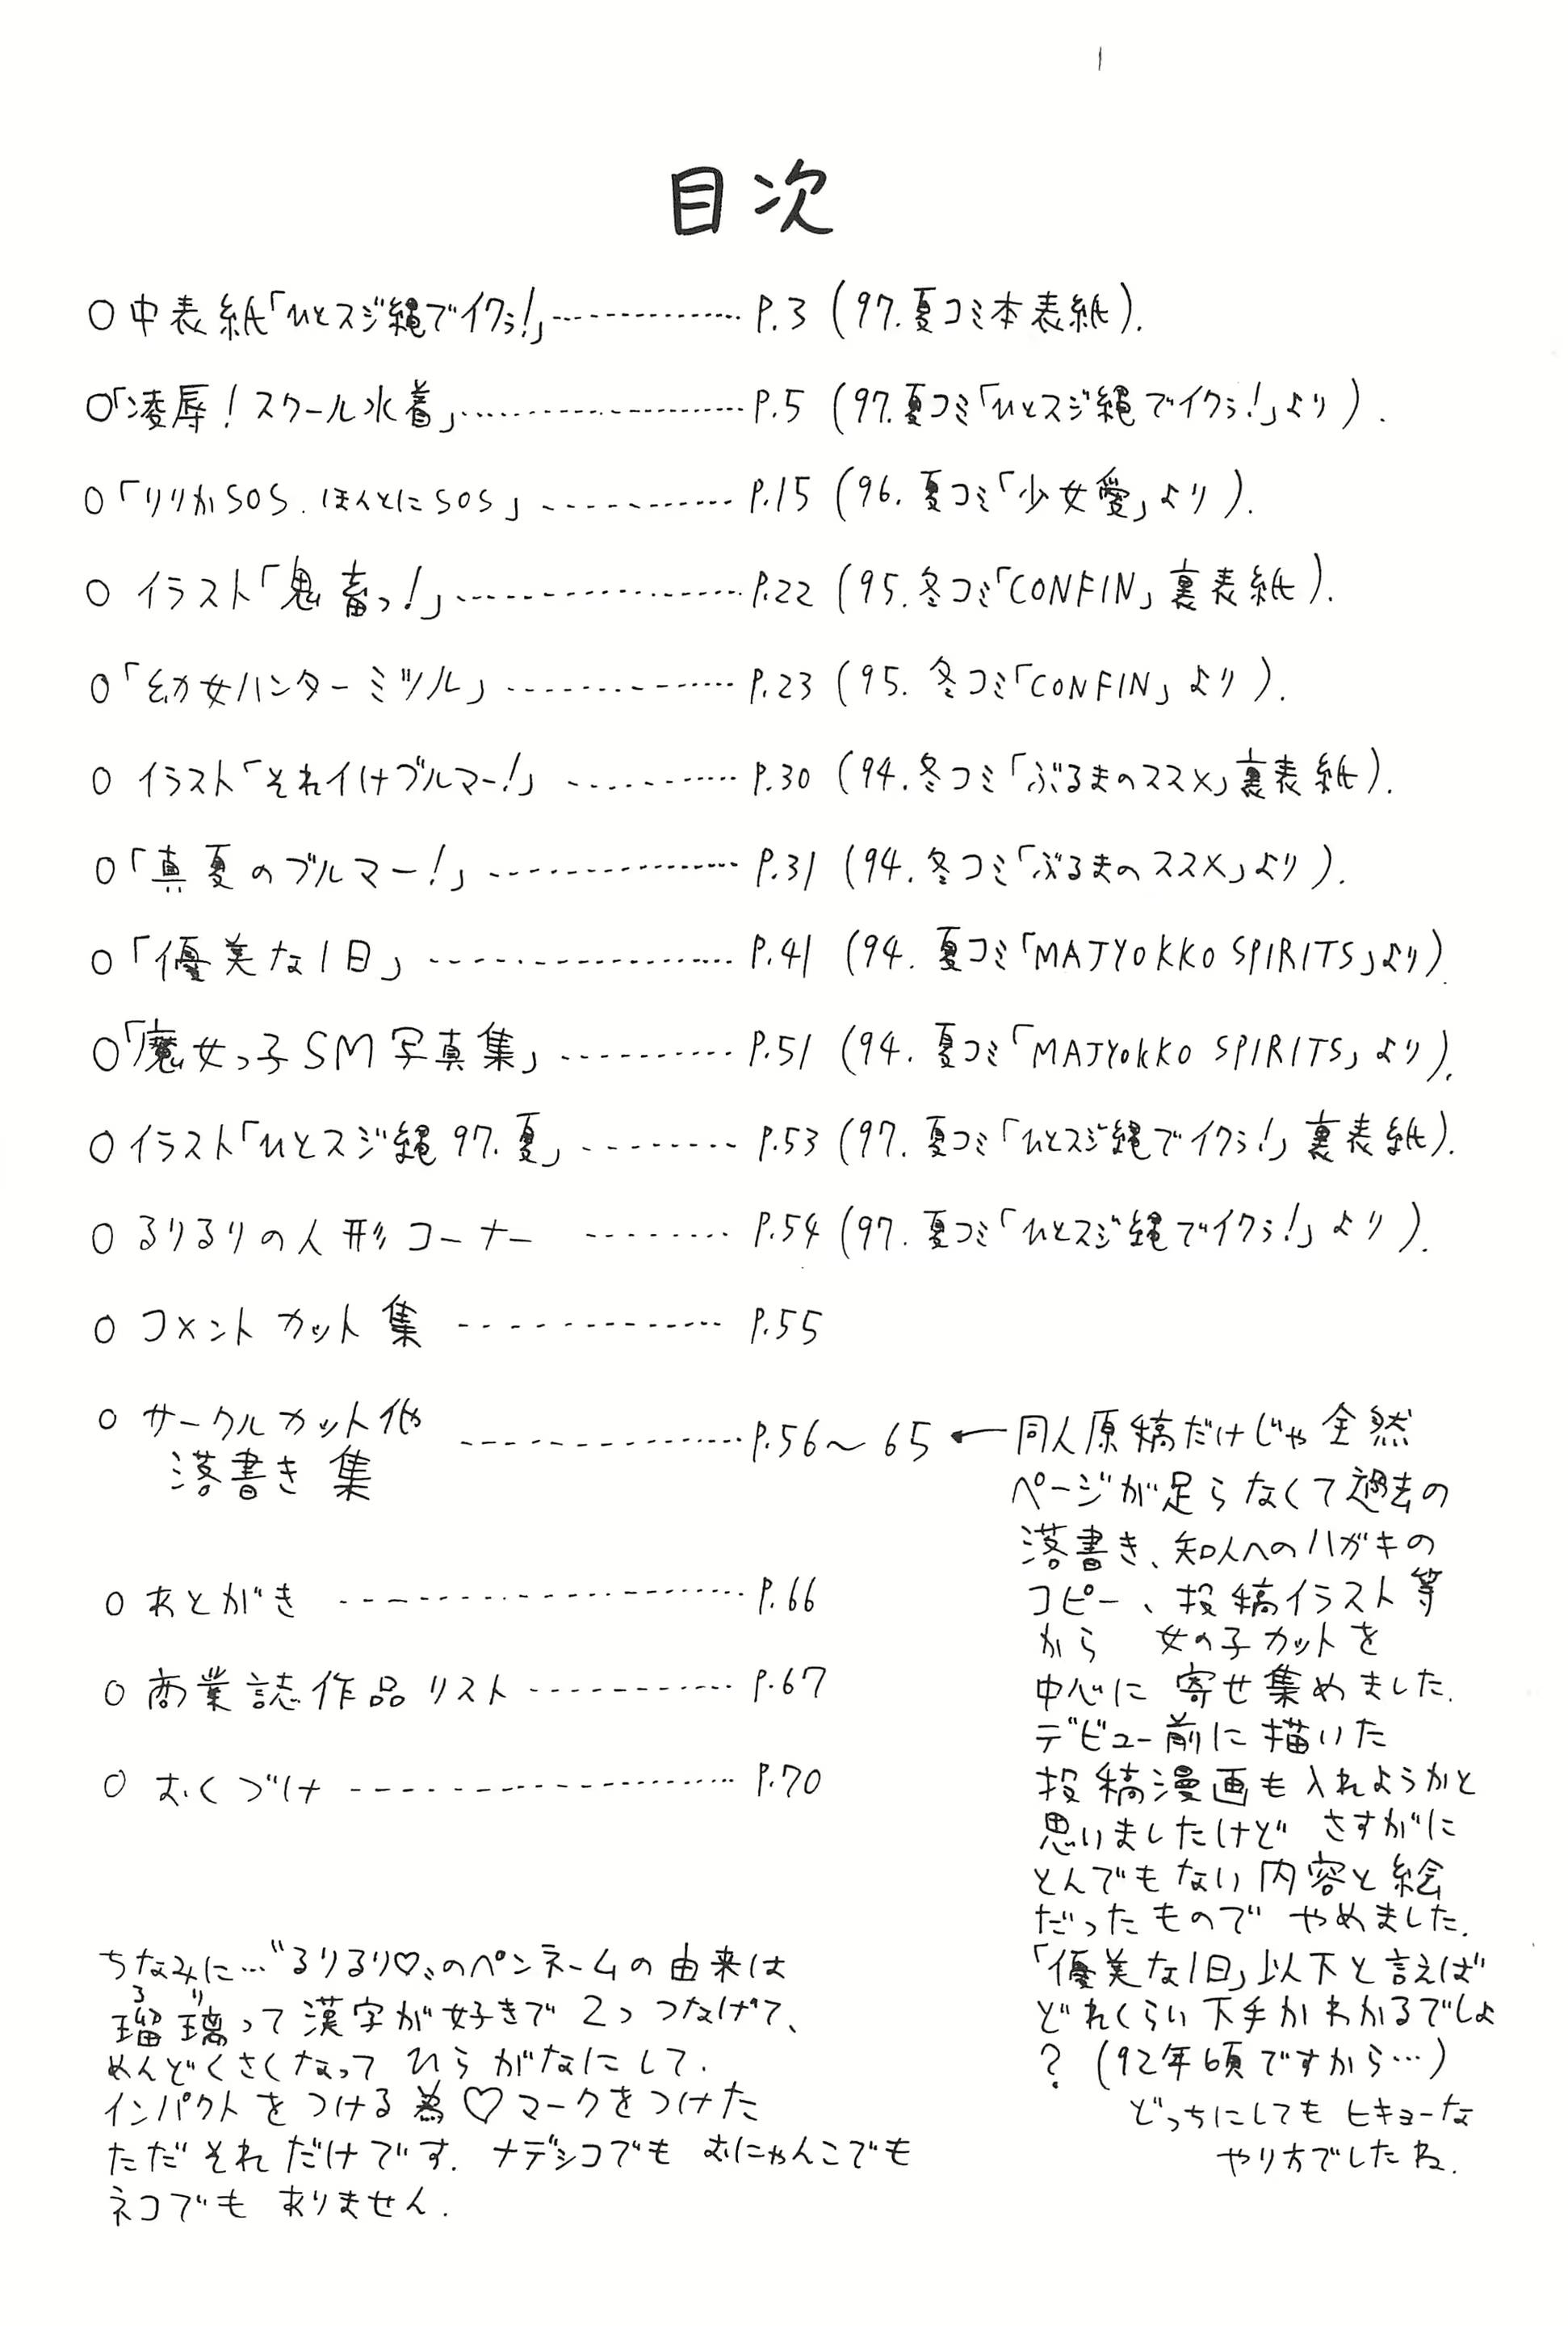 目次
○中表紙「ひとスジ縄でイクぅ!」------------- P.3 (97.夏コミ本表紙).
○「凌辱!スクール水着」------------- P.5 (97.夏コミ「ひとスジ縄でイクぅ!」より).
○「りりかSOS.ほんとにSOS」------------- P.15 (96.夏コミ「少女愛」より).
○ イラスト「鬼畜っ!」------------- P.22 (95.冬コミ「CONFIN」裏表紙).
○「幼女ハンターミツル」------------- P.23 (95.冬コミ「CONFIN」より).
○ イラスト「それイけブルマー!」------------- P.30 (94.冬コミ「ぶるまのススメ」裏表紙).
○「真夏のブルマー!」------------- P.31 (94.冬コミ「ぶるまのススメ」より).
○「優美な1日」------------- P.41 (94.夏コミ「MAJYOKKO SPIRITS」より)
○「魔女っ子SM写真集」------------- P.51 (94.夏コミ「MAJYOKKO SPIRITS」より).
○イラスト「ひとスジ縄97.夏」------------- P.53 (97.夏コミ「ひとスジ縄でイクぅ!」裏表紙).
○ るりるりの人形コーナー ------------- P.54 (97.夏コミ「ひとスジ縄でイクぅ!」より).
○ コメントカット集 ------------- P.55
○ サークルカット他
落書き集 ------------- P.56〜65
○ あとがき ------------- P.66
○商業誌作品リスト ------------- P.67
○ おくづけ ------------- P.70
←同人原稿だけじゃ全然
ページが足らなくて過去の
落書き、知人へのハガキの
コピー、投稿イラスト等
から 女の子カットを
中心に 寄せ集めました.
デビュー前に描いた
投稿漫画も入れようかと
思いましたけど さすがに
とんでもない内容と絵
だったもので やめました.
「優美な1日」以下と言えば
どれくらい下手かわかるでしょ
? (92年頃ですから…)
どっちにしても ヒキョーな
やり方でしたね.
ちなみに…“るりるり♡〟のペンネームの由来は
瑠璃って漢字が好きで 2つ つなげて、
るり
めんどくさくなって ひらがなにして.
インパクトをつける為♡マークをつけた
ただそれだけです. ナデシコでも おにゃんこでも
ネコでも ありません.